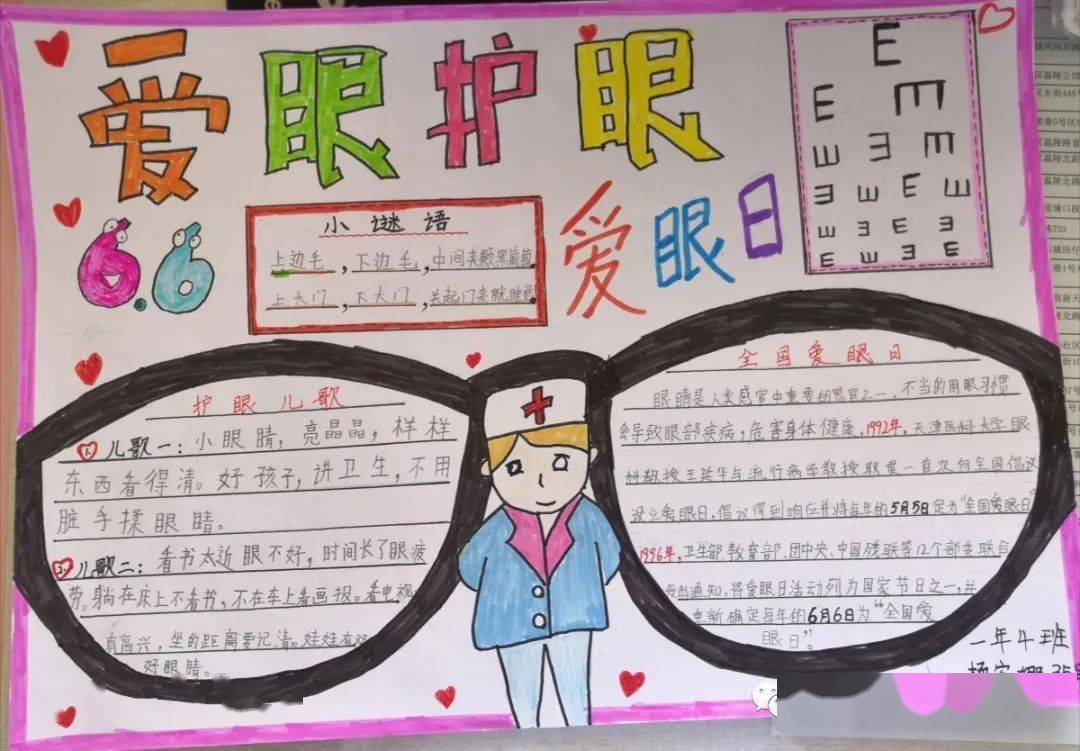 爱眼护眼
6.6
小谜语
上边毛,下边毛,中间夹颗黑葡萄.
上大门,下大门,关起门来就睡觉.
爱眼日
E
E E
E E E
E E E E
E E E E
E E E E E
护眼儿歌
1. 儿歌一:小眼睛,亮晶晶,样样
东西看得清。好孩子,讲卫生,不用
脏手揉眼睛。
2. 儿歌二:看书太近眼不好,时间长了眼疲
劳。躺在床上不看书,不在车上看画报。看电视
有高兴,坐的距离要记清。娃娃有
好眼睛。
全国爱眼日
眼睛是人类感官中重要的器官之一,不当的用眼习惯
会导致眼部疾病,危害身体健康,1992年,天津医科大学眼
科教授王延华与流行病学教授耿贯一首次向全国倡议
设立爱眼日,倡议得到响应并将每年的5月5日定为"全国爱眼日"
1996年,卫生部、教育部、团中央、中国残联等12个部委联合
发出通知,将爱眼日活动列为国家节日之一,并
重新确定每年的6月6日为"全国爱
眼日"。
二年4班